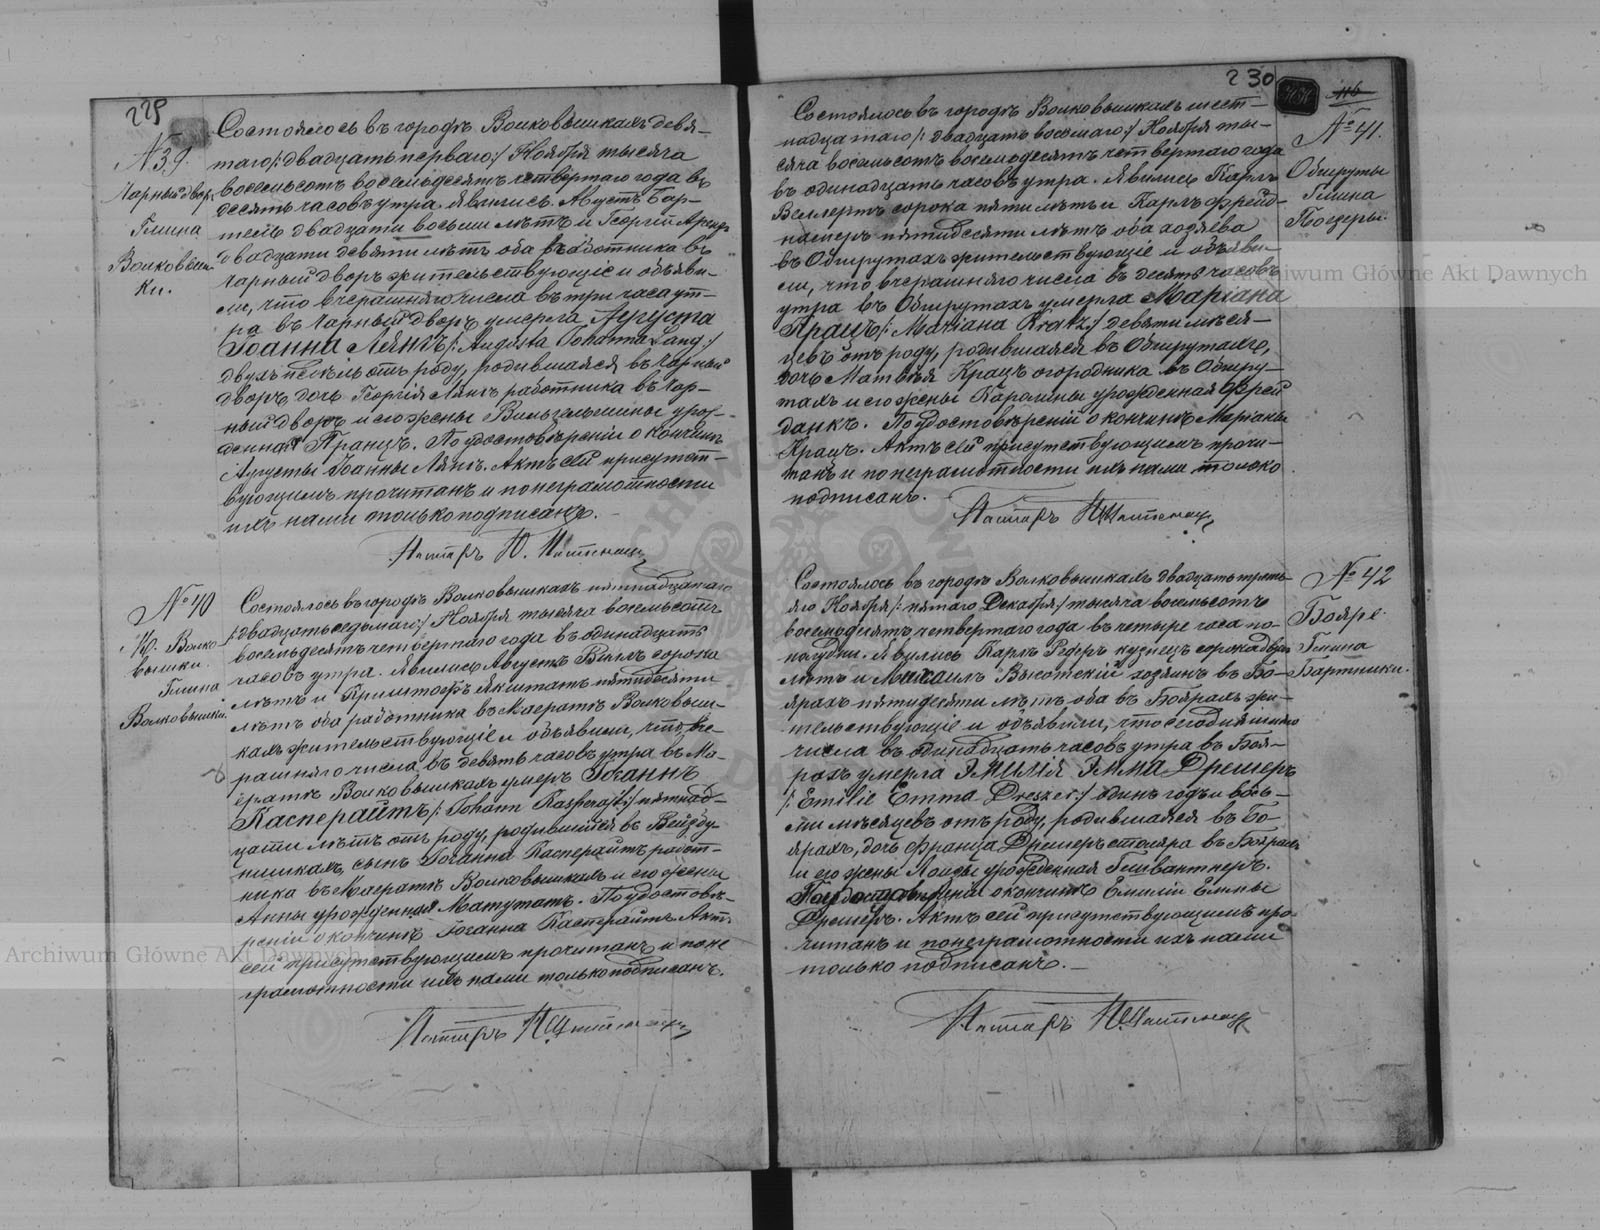 229
№ 39.
Чарный дворъ
Гмина
Волковыш-
ки.
Состоялось въ городѣ Волковышкахъ девя-
таго /: двадцать перваго :/ Ноября тысяча
восемьсотъ восемьдесятъ четвертаго года въ
десять часовъ утра. Явились Августъ Бар-
тель двадцати восьми лѣтъ и Георгій Арендъ
двадцати девяти лѣтъ оба работника въ
Чарный дворъ жительствующіе и объяви-
ли, что вчерашняго числа въ три часа ут-
ра въ Чарный дворъ умерла Августа
Іоанна Лянгъ /: Augusta Johanna Lang :/
двухъ недѣль отъ роду, родившаяся въ Чарный
дворъ дочь Георгія Лянгъ работника въ Чар-
ный дворъ и его жены Вильгельмины урож-
денная Пранцъ. По удостовѣреніи о кончинѣ
Августы Іоанны Лянгъ. Актъ сей присутст-
вующимъ прочитанъ и по неграмотности
ихъ нами только подписанъ. -
Пасторъ
№ 40
М. Волко-
вышки.
Гмина
Волковышки.
Состоялось въ городѣ Волковышкахъ пятнадцатаго
/: двадцать седьмаго :/ Ноября тысяча восемьсотъ
восемьдесятъ четвертаго года въ одинадцать
часовъ утра. Явились Августъ Вилъ сорока
лѣтъ и Криштофъ Якштатъ пятидесяти
лѣтъ оба работника въ Маератѣ Волковыш-
кахъ жительствующіе и объявили, что вче-
рашняго числа въ девять часовъ утра въ Ма-
ератѣ Волковышкахъ умеръ Іоаннъ
Касперайтъ /: Johann Kasperajt :/ пятнад-
цати лѣтъ отъ роду, родившійся въ
нишкахъ, сынъ Іоганна Касперайтъ работ-
ника въ Маератѣ Волковышкахъ и его жены
Анны урожденная Матутатъ. По удостовѣ-
реніи о кончинѣ Іоганна Касперайтъ. Актъ
сей присутствующимъ прочитанъ и по не
грамотности ихъ нами только подписанъ.
Пасторъ
230
116
№ 41.
Обшруты
Гмина
Состоялось въ городѣ Волковышкахъ шест-
надцатаго /: двадцать восьмаго :/ Ноября ты-
сяча восемьсотъ восемьдесятъ четвертаго года
въ одинадцать часовъ утра. Явились Карлъ
Веллертъ сорока пяти лѣтъ и Карлъ Фрейд-
пятидесяти лѣтъ оба хозяева
въ Обшрутахъ жительствующіе и объяви-
ли, что вчерашняго числа въ десять часовъ
утра въ Обшрутахъ умерла Маріана
Крацъ /: Mariana Kratz :/ девяти мѣся-
цевъ отъ роду, родившаяся въ Обшрутахъ,
дочь Матвѣя Крацъ огородника въ Обшру-
тахъ и его жены Каролины урожденная Фрей
данкъ. По удостовѣреніи о кончинѣ Маріаны
Крацъ. Актъ сей присутствующимъ прочи-
танъ и по неграмотности ихъ нами только
подписанъ.
Пасторъ
№ 42
Бояре
Гмина
Бартники.
Состоялось въ городѣ Волковышкахъ двадцать треть-
яго Ноября /: пятаго Декабря :/ тысяча восемьсотъ
восемдесятъ четвертаго года въ четыре часа по-
полудни. Явились Карлъ Редеръ кузнецъ сорока двухъ
лѣтъ и Михаилъ Высотскій хозяинъ въ Бо-
ярахъ пятидесяти лѣтъ оба въ Боярахъ жи-
тельствующіе и объявили, что сегодняшняго
числа въ одинадцать часовъ утра въ Боя-
рахъ умерла Эмилія Эмма Дрешеръ
/: Emilie Emma Dreszer :/ одинъ годъ и вось-
ми мѣсяцевъ отъ роду, родившаяся въ Бо-
ярахъ, дочь Франца Дрешеръ столяра въ Боярахъ
и его жены Луизы урожденная Гешвантнеръ.
По удостовѣреніи о кончинѣ Емиліи Еммы
Дрешеръ. Актъ сей присутствующимъ про-
читанъ и по неграмотности ихъ нами
только подписанъ. -
Пасторъ
Archiwum Główne Akt Dawnych
Archiwum Główne Akt Dawnych